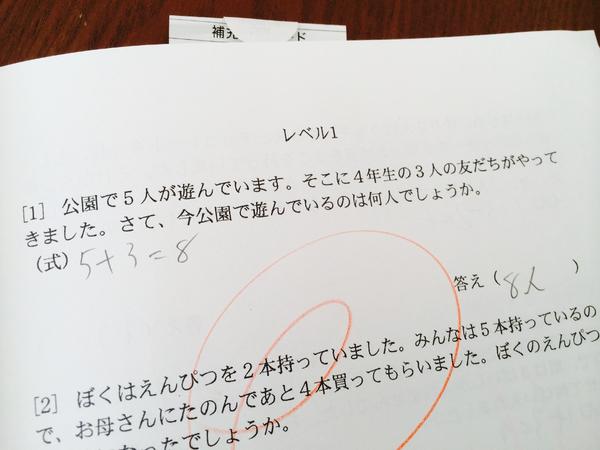 補充
ド
レベル1
[1] 公園で5人が遊んでいます。そこに4年生の3人の友だちがやって
きました。さて、今公園で遊んでいるのは何人でしょうか。
(式) 5+3=8
答え ( 8人 )
[2] ぼくはえんぴつを2本持っていました。みんなは5本持っているの
で、お母さんにたのんであと4本買ってもらいました。ぼくのえんぴつ
なったでしょうか。